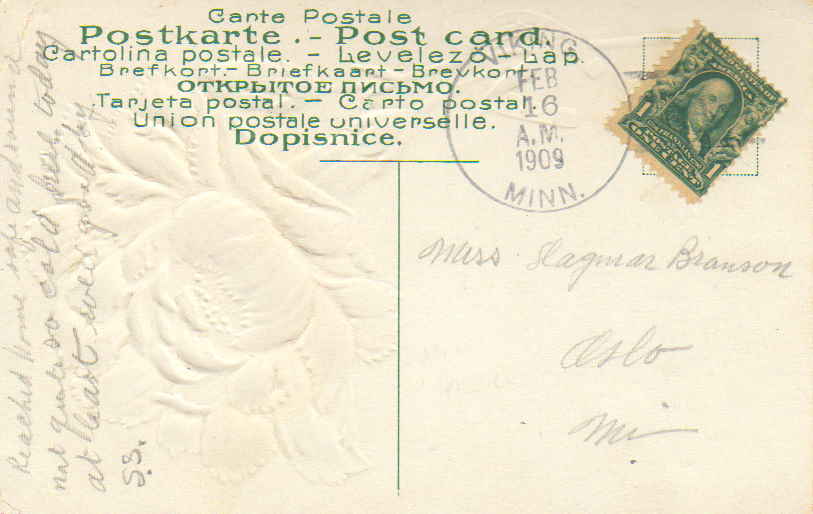 Carte Postale
Postkarte. - Post card.
Cartolina postale. - Levelező-Lap.
Brefkort.- Briefkaart - Brevkort.
ОТКРЫТОЕ ПИСЬМО.
Tarjeta postal. - Carto postal.
Union postale universelle.
Dopisnice.
VIKING
FEB
16
A.M.
1909
MINN.
1 1
Miss Dagmar Branson
Oslo
Mi
Reached home safe and sound
not quite so cold here today
at least well good by
S.S.